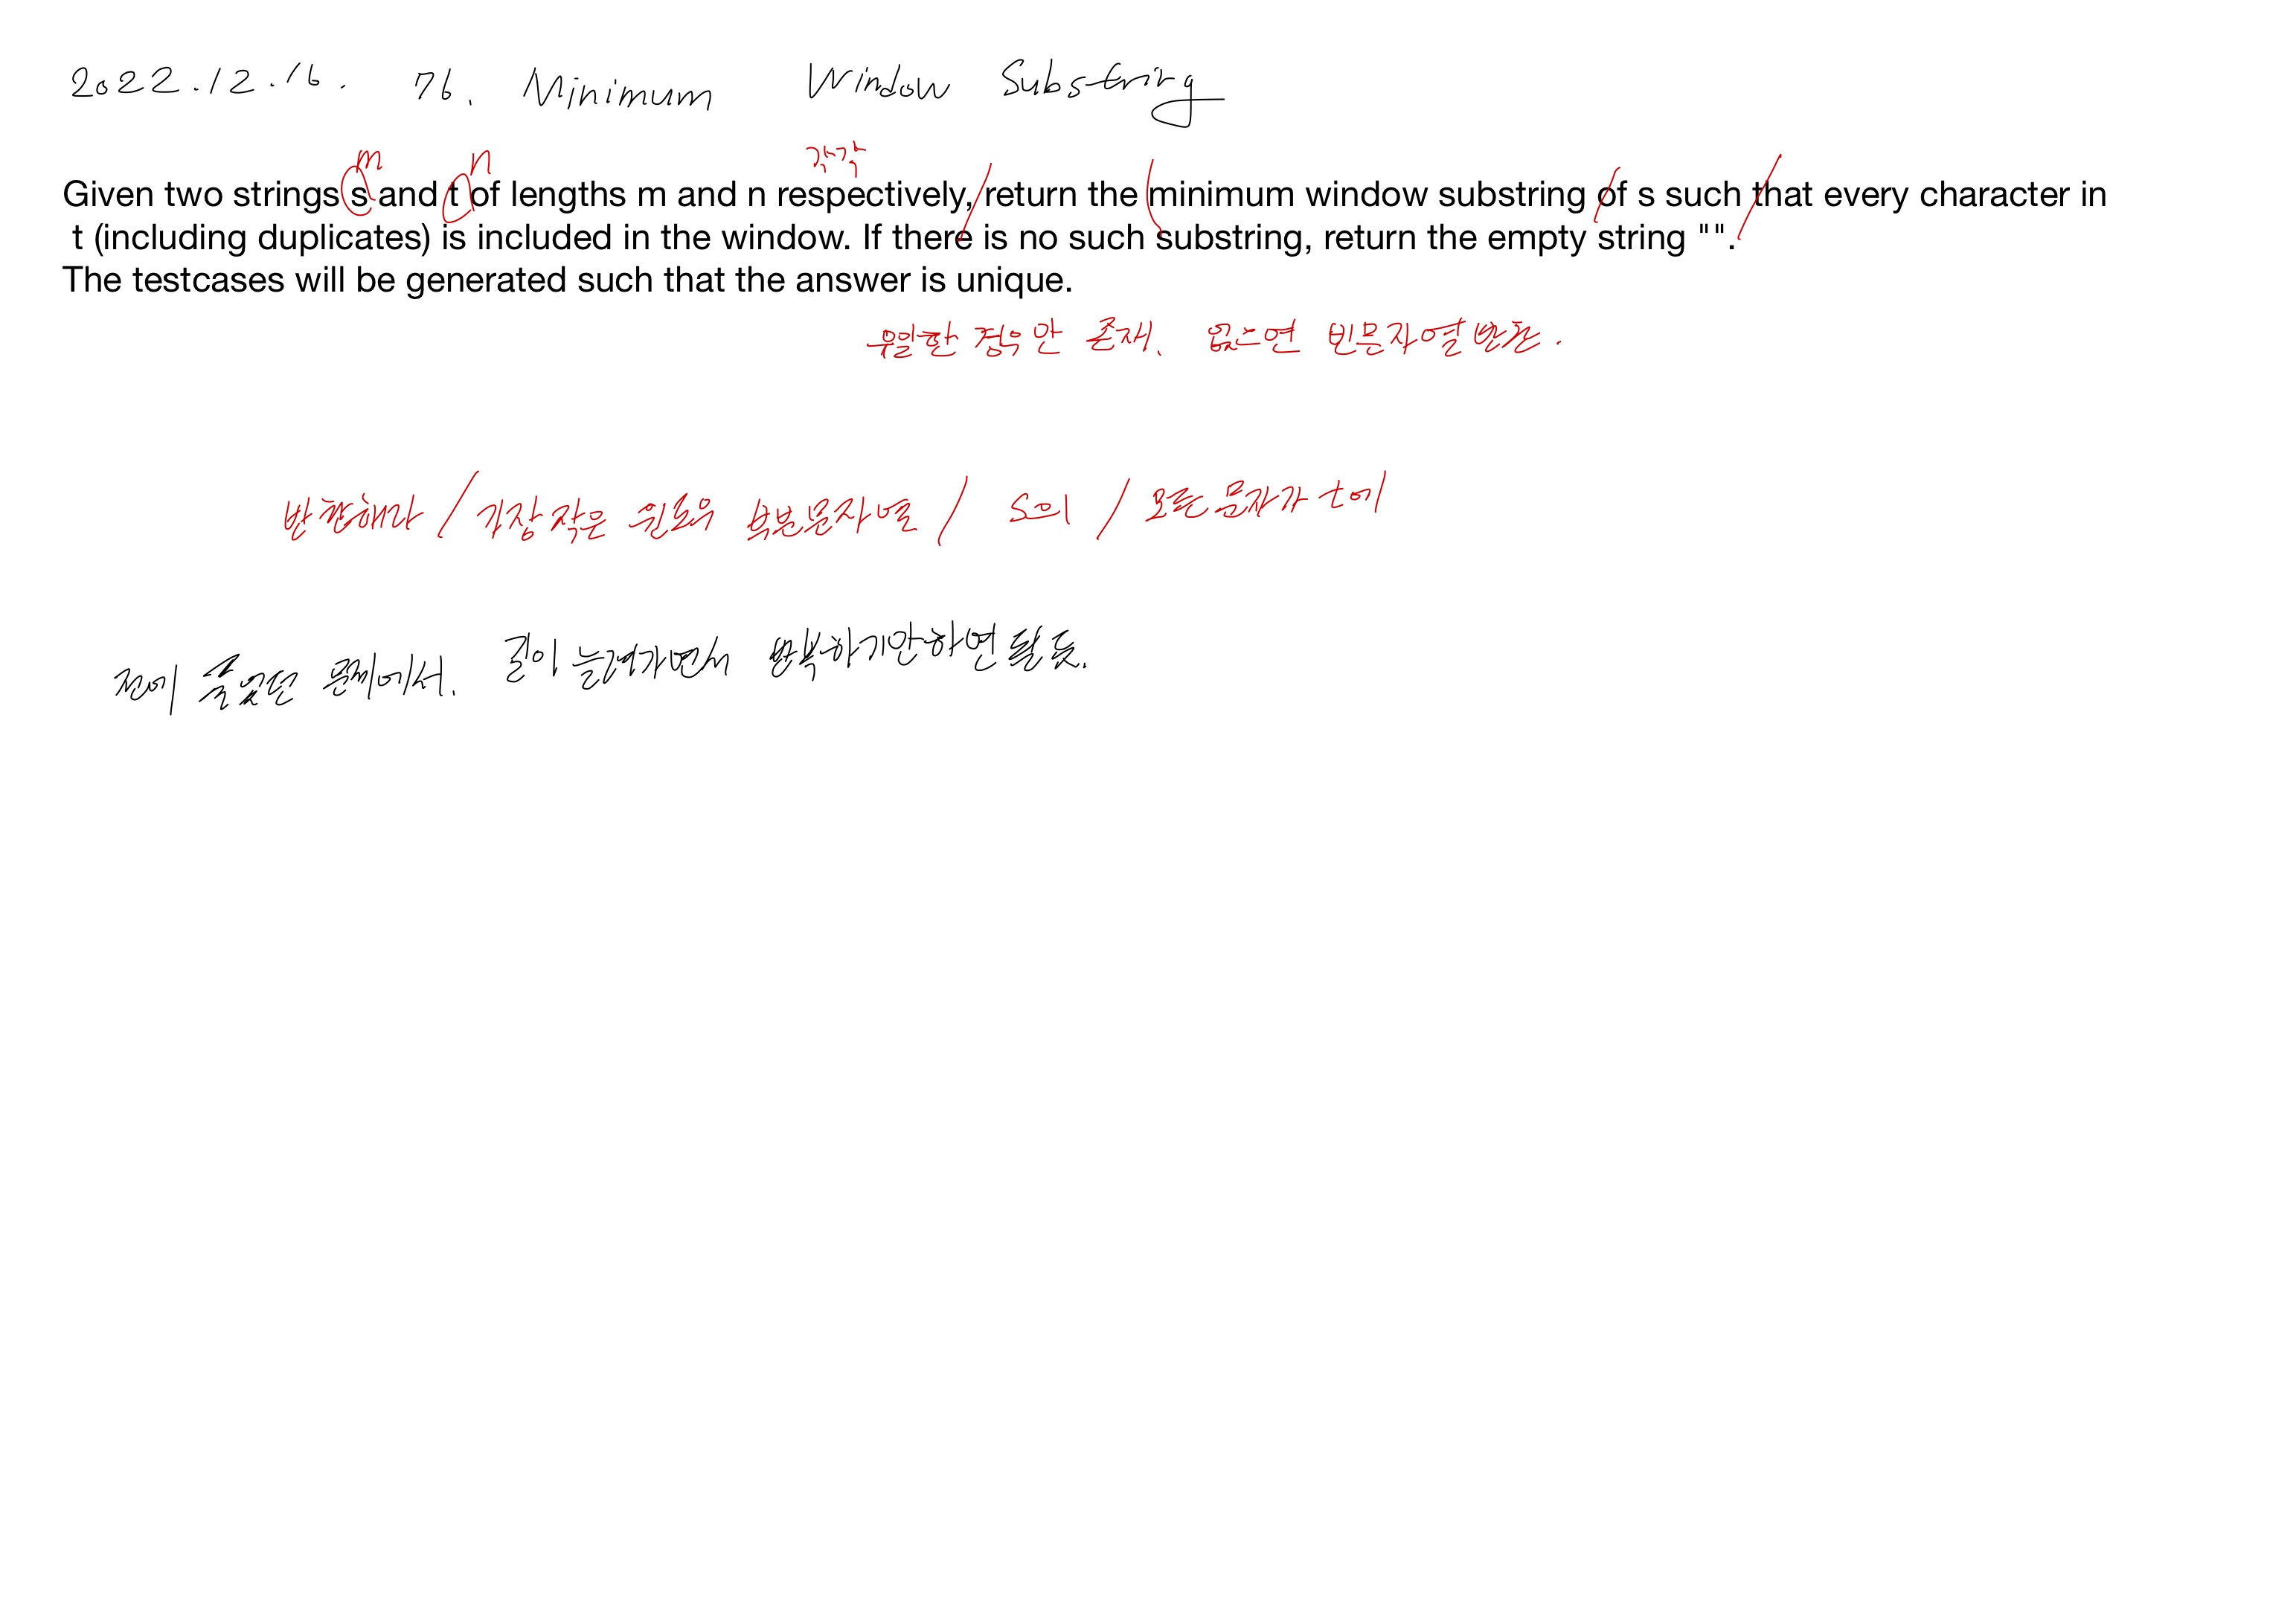 2022.12.16. 76. Minimum Window Substring
m n 각각
Given two strings s and t of lengths m and n respectively, return the minimum window substring of s such that every character in
t (including duplicates) is included in the window. If there is no such substring, return the empty string "".
The testcases will be generated such that the answer is unique.
유일한 경우만 존재. 없으면 빈문자열 반환.
반환해라 / 가장 작은 윈도우 부분문자열 / s의 / 모든 문자가 t에
전에 풀었던 문제에서. 길이 늘려가면서 반복하기만하면 될 듯.